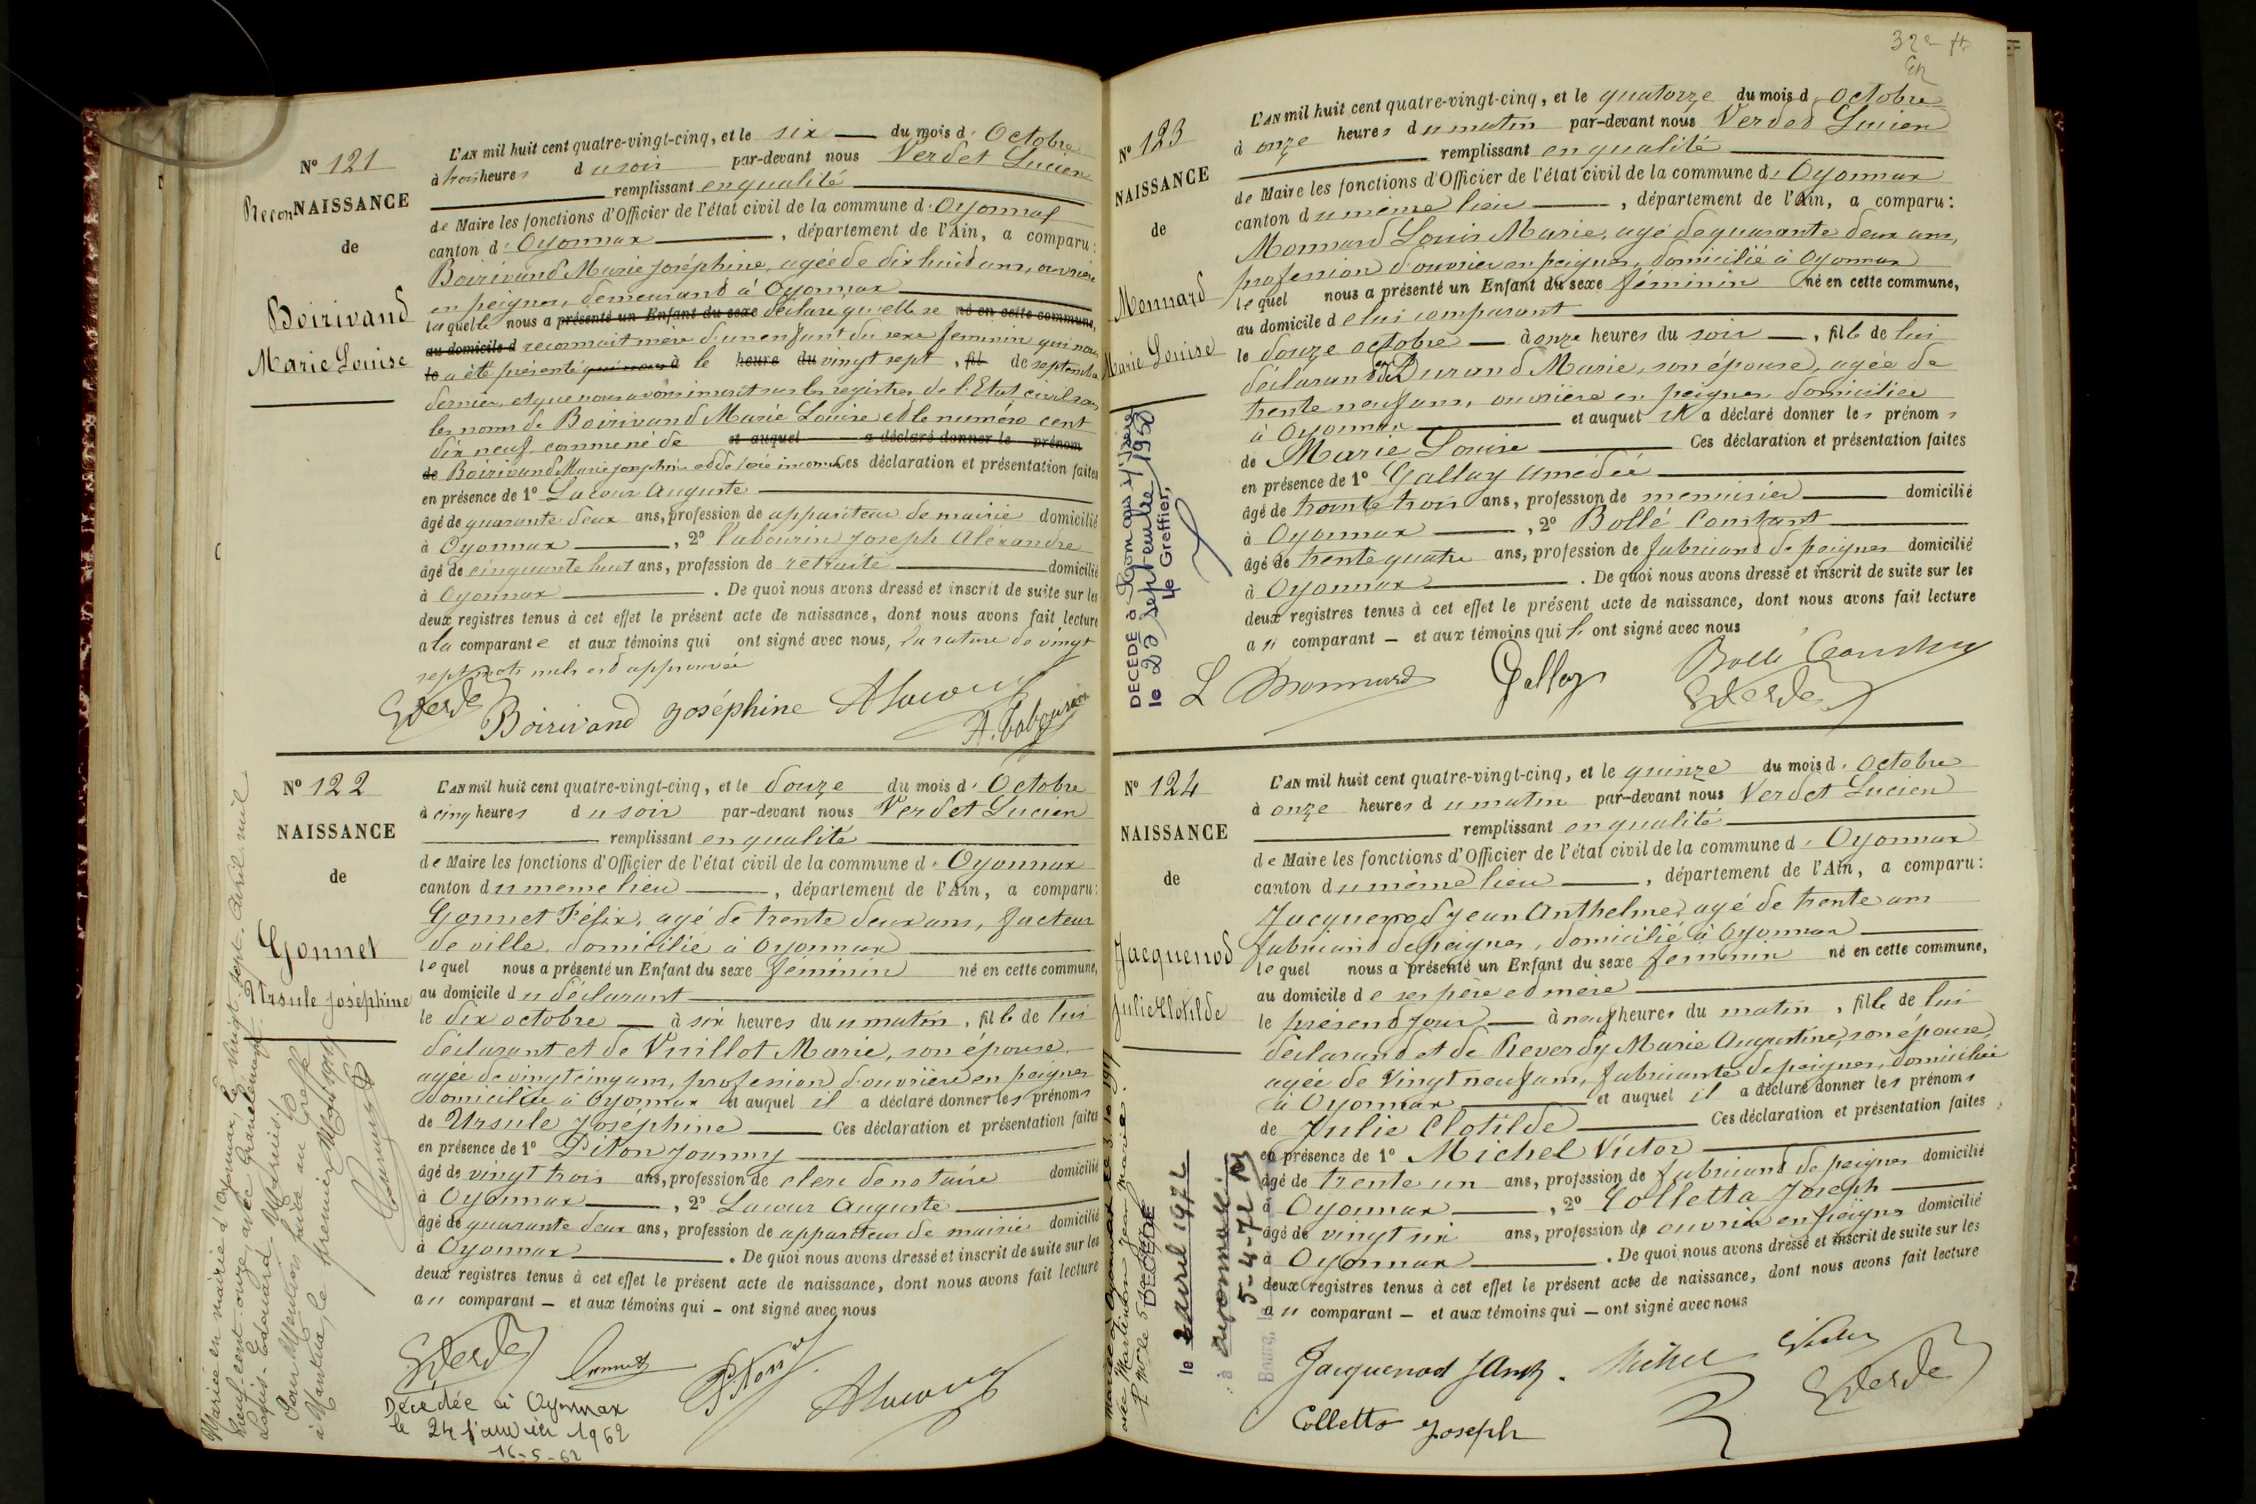 N° 121
Recon NAISSANCE
de
Boirivand
Marie Louise
L'AN mil huit cent quatre-vingt-cinq, et le six du mois d' Octobre
à trois heures du soir par-devant nous Verdet Lucien
remplissant en qualité
de Maire les fonctions d'Officier de l'état civil de la commune d' Oyonnax
canton d' Oyonnax, département de l'Ain, a comparu:
Boirivand Marie Joséphine, agée de dix huit ans, ouvrière
en peignes, demeurant à Oyonnax
laquelle nous a présenté un Enfant du sexe déclare qu'elle se né en cette commune,
au domicile d reconnait mère d'un enfant du sexe feminin qui nous
le a été présenté à le heure du vingt sept, fil de septembre
dernier, et que nous avons inscrit sur les registres de l'Etat civil sous
les noms de Boirivand Marie Louise et le numéro cent
dix neuf comme né de et auquel a déclaré donner le prénom
de Boirivand Marie Joséphine et de père inconnu Ces déclaration et présentation faites
en présence de 1° Lacour Auguste
âgé de quarante deux ans, profession de appariteur de mairie domicilié
à Oyonnax, 2° Tabourin Joseph Alexandre
âgé de cinquante huit ans, profession de retraité domicilié
à Oyonnax. De quoi nous avons dressé et inscrit de suite sur les
deux registres tenus à cet effet le présent acte de naissance, dont nous avons fait lecture
a la comparante et aux témoins qui ont signé avec nous, la rature de vingt
sept mots nuls est approuvée
Boirivand Joséphine ALacour
A. Tabourin
N° 122
NAISSANCE
de
Gonnet
Ursule Joséphine
L'AN mil huit cent quatre-vingt-cinq, et le douze du mois d' Octobre
à cinq heures du soir par-devant nous Verdet Lucien
remplissant en qualité
de Maire les fonctions d'Officier de l'état civil de la commune d' Oyonnax
canton du meme lieu, département de l'Ain, a comparu:
Gonnet Félix, agé de trente deux ans, facteur
de ville, domicilié à Oyonnax
lequel nous a présenté un Enfant du sexe féminin né en cette commune,
au domicile du déclarant
le dix octobre à six heures du matin, fille de lui
déclarant et de Vuillot Marie, son épouse,
agée de vingt cinq ans, profession d'ouvrière en peignes
domiciliée à Oyonnax et auquel il a déclaré donner les prénoms
de Ursule Joséphine Ces déclaration et présentation faites
en présence de 1° Piton Joanny
âgé de vingt trois ans, profession de clerc de notaire domicilié
à Oyonnax, 2° Lacour Auguste
âgé de quarante deux ans, profession de appariteur de mairie domicilié
à Oyonnax. De quoi nous avons dressé et inscrit de suite sur les
deux registres tenus à cet effet le présent acte de naissance, dont nous avons fait lecture
au comparant et aux témoins qui ont signé avec nous
ALacour
Décédée à Oyonnax
le 24 janvier 1962
16-5-62
Mariée en mairie d'Oyonnax, le huit sept. avril mil
neuf-cent-onze, avec
Louis-Edouard Marius
Pour Mention faite au Greffe
à Nantua, le premier Mai 1911
32e ft
N° 123
NAISSANCE
de
Monnard
Marie Louise
L'AN mil huit cent quatre-vingt-cinq, et le quatorze du mois d' Octobre
à onze heures du matin par-devant nous Verdet Lucien
remplissant en qualité
de Maire les fonctions d'Officier de l'état civil de la commune d' Oyonnax
canton du même lieu, département de l'Ain, a comparu:
Monnard Louis Marie, agé de quarante deux ans,
profession d'ouvrier en peignes, domicilié à Oyonnax
lequel nous a présenté un Enfant du sexe féminin né en cette commune,
au domicile de lui comparant
le douze octobre à onze heures du soir, fille de lui
déclarant et de Durand Marie, son épouse, agée de
trente neuf ans, ouvrière en peignes domiciliée
à Oyonnax et auquel il a déclaré donner les prénoms
de Marie Louise Ces déclaration et présentation faites
en présence de 1° Gallay Amédée
âgé de trente trois ans, profession de menuisier domicilié
à Oyonnax, 2° Bollé Constant
âgé de trente quatre ans, profession de fabricant de peignes domicilié
à Oyonnax. De quoi nous avons dressé et inscrit de suite sur les
deux registres tenus à cet effet le présent acte de naissance, dont nous avons fait lecture
au comparant et aux témoins qui ont signé avec nous
L Monnard Gallay
DECEDE à
le 22 septembre 1950
Le Greffier,
N° 124
NAISSANCE
de
Jacquenod
Julie Clotilde
L'AN mil huit cent quatre-vingt-cinq, et le quinze du mois d' Octobre
à onze heures du matin par-devant nous Verdet Lucien
remplissant en qualité
de Maire les fonctions d'Officier de l'état civil de la commune d' Oyonnax
canton du même lieu, département de l'Ain, a comparu:
Jacquenod Jean Anthelme, agé de trente ans
fabricant de peignes, domicilié à Oyonnax
lequel nous a présenté un Enfant du sexe féminin né en cette commune,
au domicile de ses père et mère
le présent jour à neuf heures du matin, fille de lui
déclarant et de Reverdy Marie Augustine, son épouse,
agée de vingt neuf ans, fabricante de peignes, domiciliée
à Oyonnax et auquel il a déclaré donner les prénoms
de Julie Clotilde Ces déclaration et présentation faites
en présence de 1° Michel Victor
âgé de trente un ans, profession de fabricant de peignes domicilié
à Oyonnax, 2° Colletta Joseph
âgé de vingt six ans, profession de ouvrier en peignes domicilié
à Oyonnax. De quoi nous avons dressé et inscrit de suite sur les
deux registres tenus à cet effet le présent acte de naissance, dont nous avons fait lecture
au comparant et aux témoins qui ont signé avec nous
Jacquenod JAnth. Michel Victor
Colletto Joseph
avec Martinand Jean Marie.
DECEDE
le 2 avril 1972
à Oyonnax
5-4-72